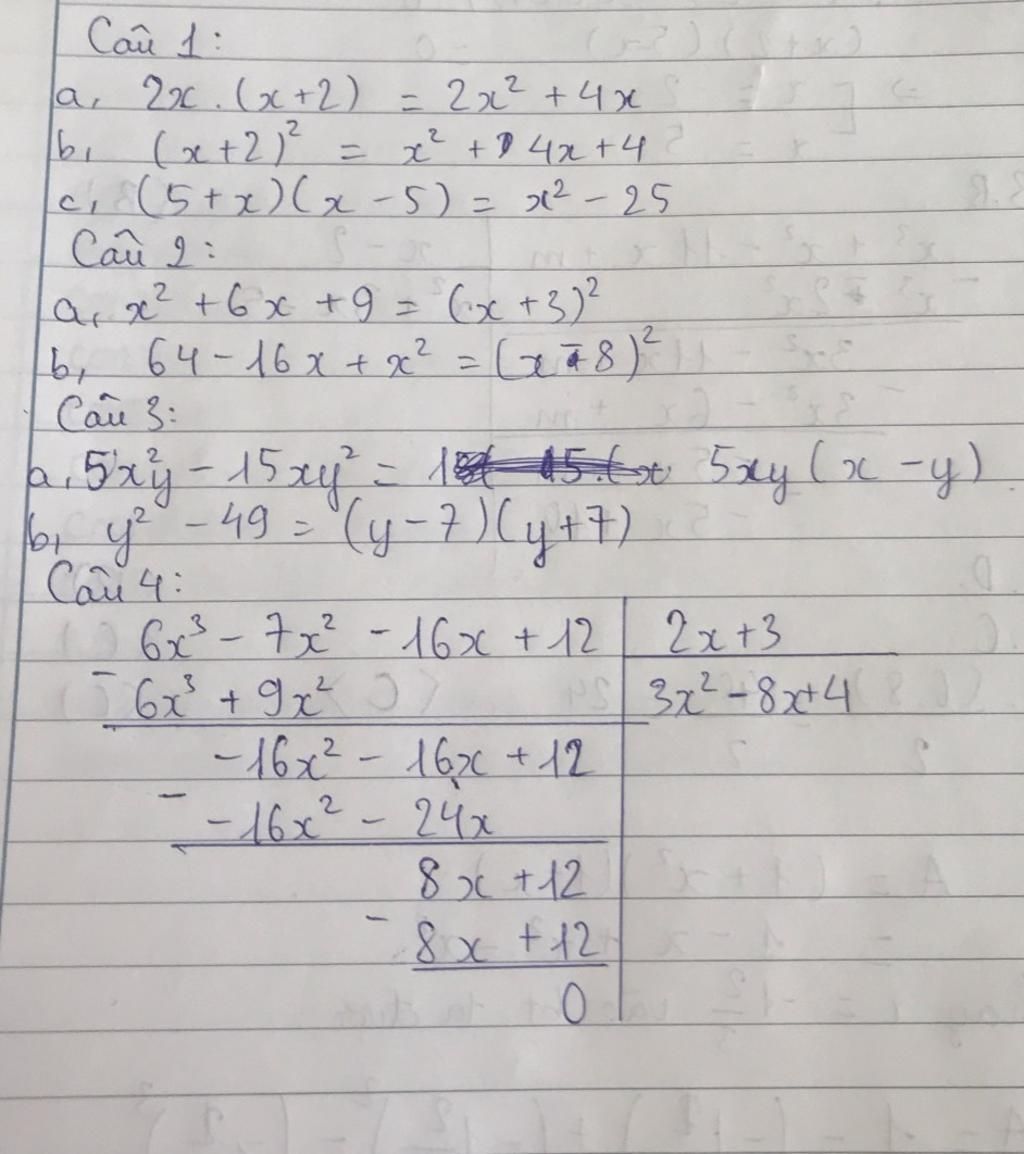 Câu 1:
a, 2x.(x+2) = 2x² + 4x
b, (x+2)² = x² + 4x+4
c, (5+x)(x-5) = x² - 25
Câu 2:
a, x² + 6x + 9 = (x+3)²
b, 64 - 16x + x² = (x-8)²
Câu 3:
a, 5x²y - 15xy² = 5xy(x-y)
b, y² - 49 = (y-7)(y+7)
Câu 4:
6x³ - 7x² - 16x + 12 | 2x+3
- 6x³ + 9x² | 3x² - 8x+4
-16x² - 16x + 12
- -16x² - 24x
8x + 12
- 8x + 12
0